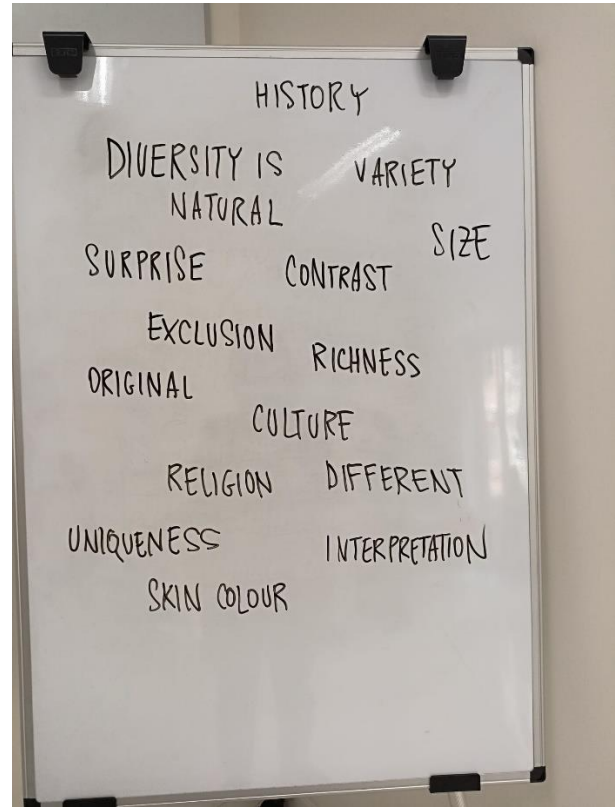 HISTORY
DIVERSITY IS
NATURAL
VARIETY
SIZE
SURPRISE
CONTRAST
EXCLUSION
RICHNESS
ORIGINAL
CULTURE
RELIGION
DIFFERENT
UNIQUENESS
INTERPRETATION
SKIN COLOUR